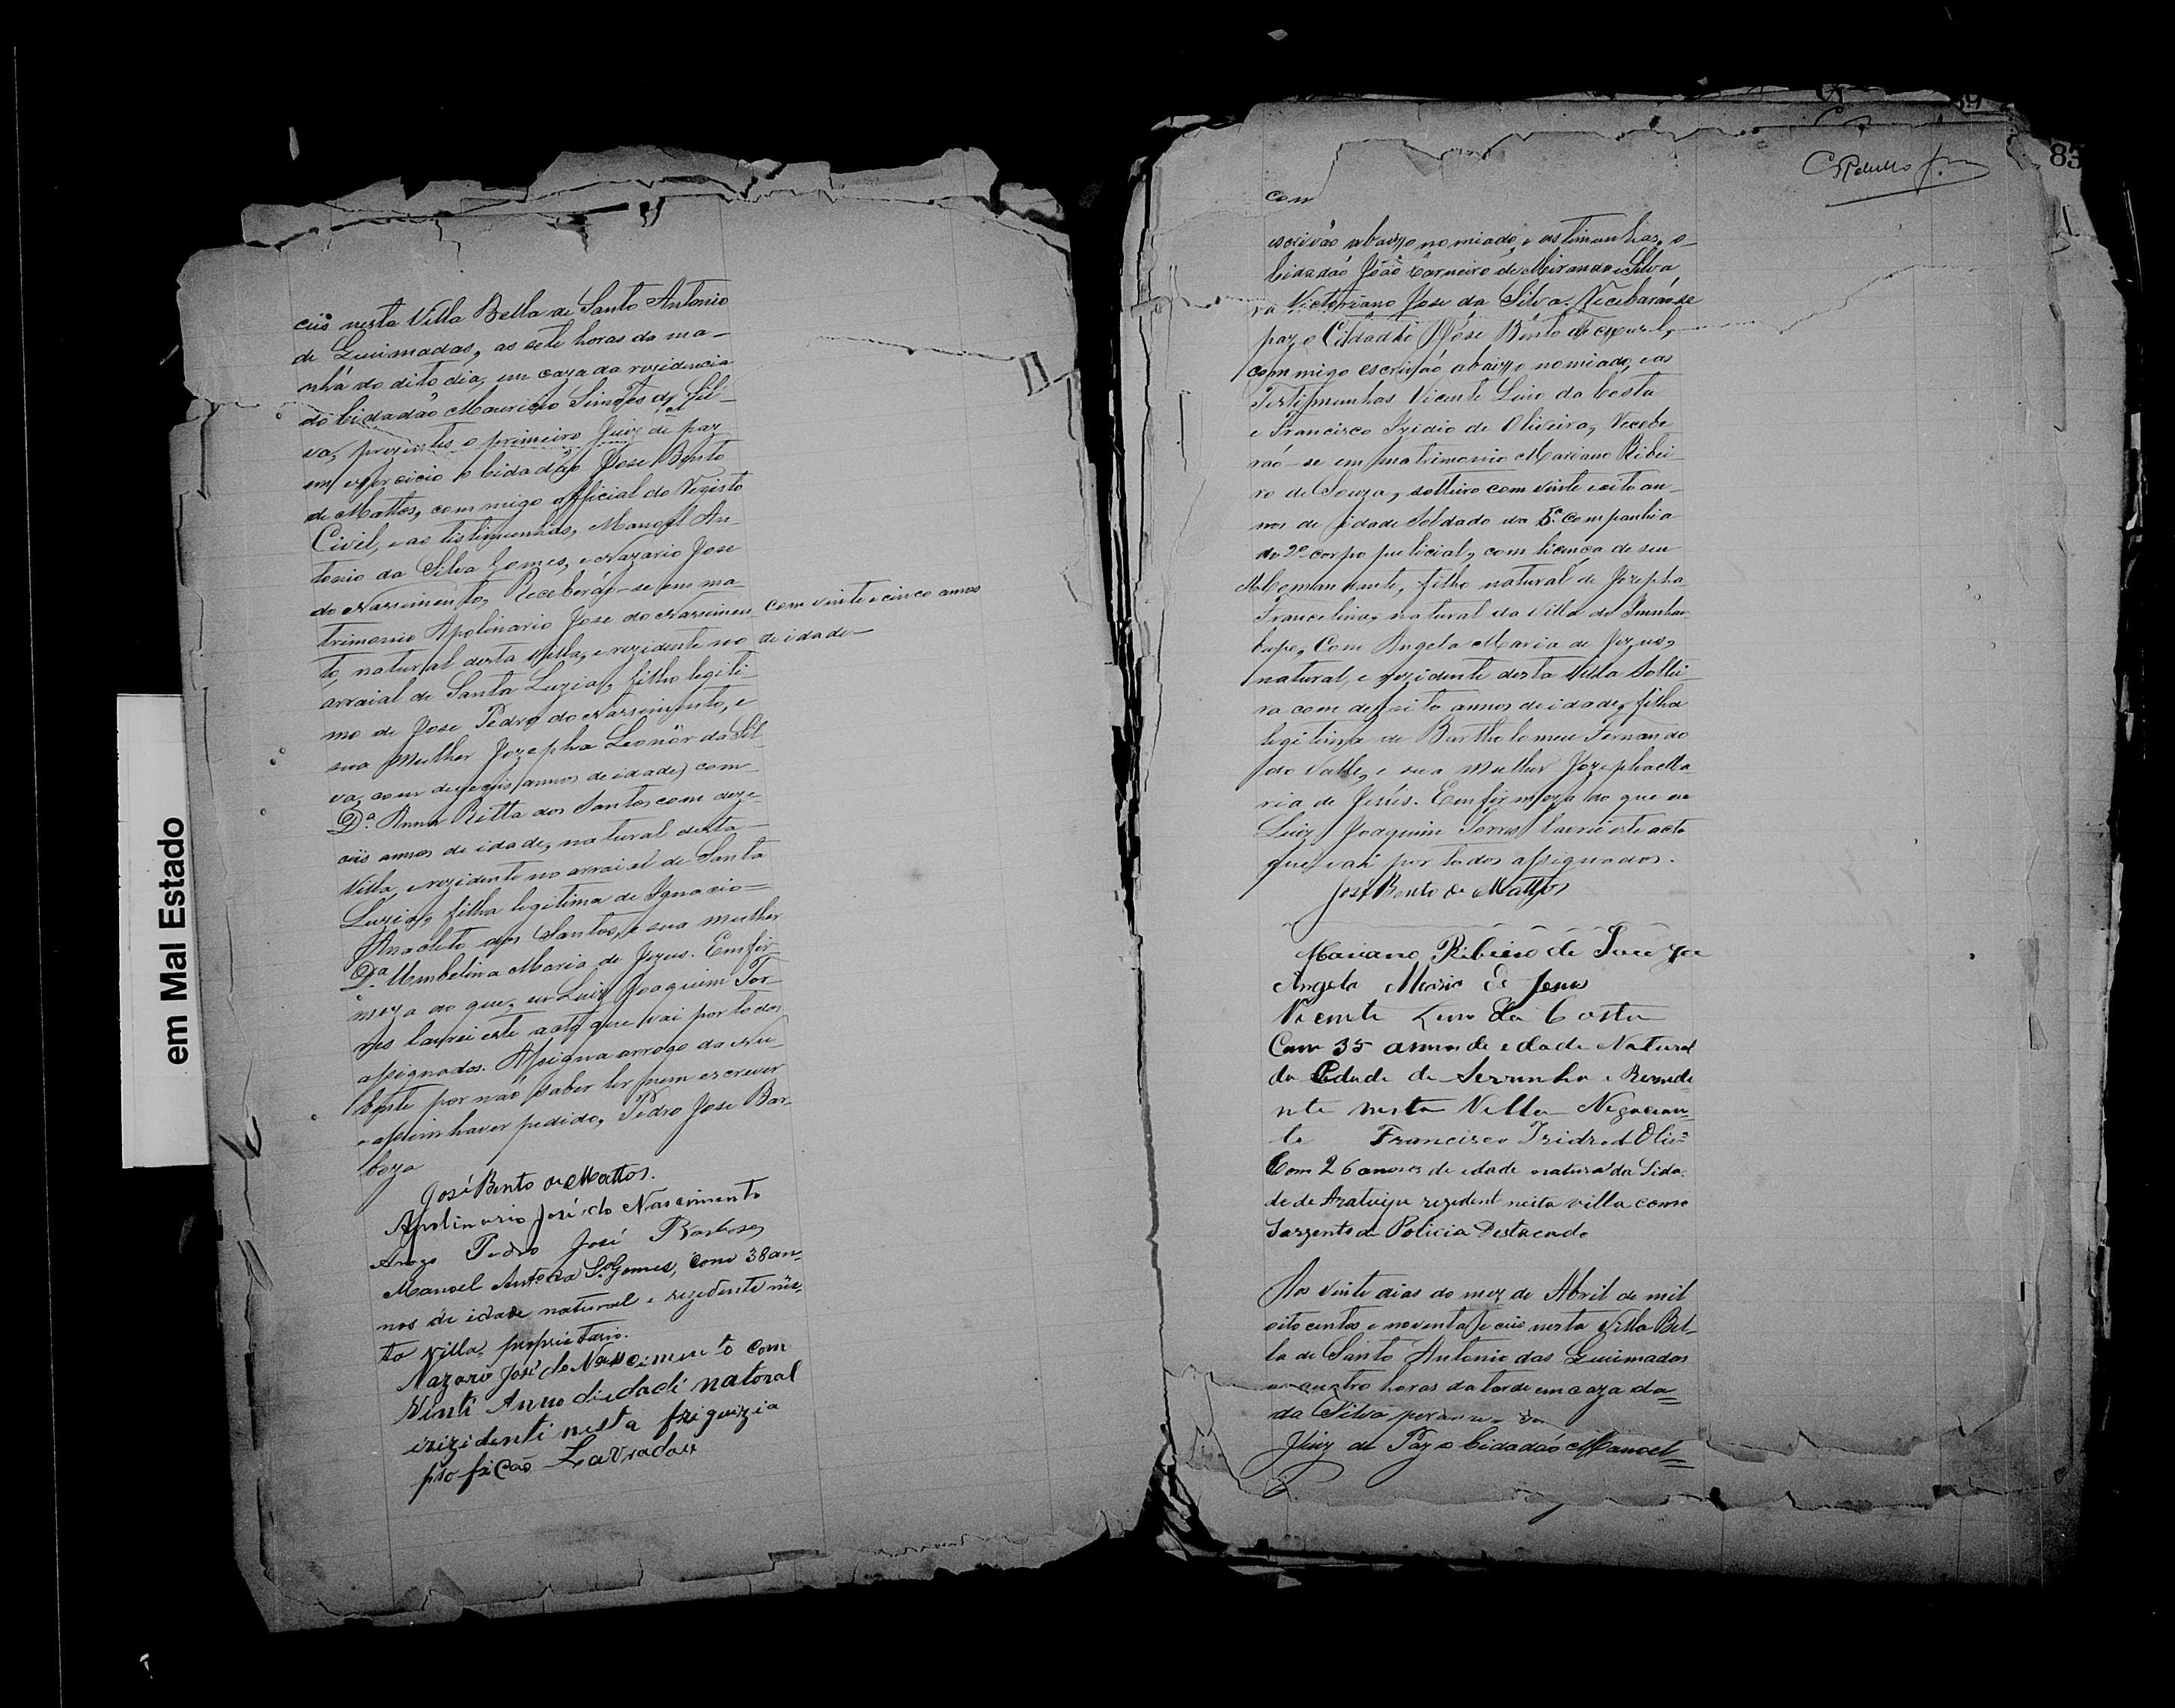 em Mal Estado
ceis nesta Villa Bella de Santo Antonio
de Queimadas, as sete horas da ma-
nhã do dito dia, em caza da rezidencia
do Cidadão Mauricio Simões da Sil-
va, prezentes o primeiro Juiz de paz
em exercicio o Cidadão Jose Bento
de Mattos, com migo official do Registo
Civil, e as testimunhas, Manoel An-
tonio da Silva Gomes, e Nazario Jose
do Nascimento, Receberão-se em ma-
trimonio Apolinario Jose do Nascimen com vinte e cinco annos
to, natural desta Villa, e rezidente no de idade-
arraial de Santa Luzia, filho legiti-
mo de Jose Pedro do Nascimento, e
sua Mulher Jozepha Leonôr da Sil-
va, com dezeceis annos de idade, com
D.ª Anna Ritta dos Santos com deze-
ceis annos de idade, natural desta
Villa, e rezidente no arraial de Santa
Luzia, filha legitima de Ignacio
Anacleto dos Santos, e sua mulher
D.ª Umbelina Maria de Jezus. Em fir-
meza do que, eu Luiz Joaquim Tor-
res lavrei este acto que vai por todos
assignados. Assigna arrogo da Nu-
bente por não saber ler nem escrever
e assim haver pedido, Pedro Jose Bar-
boza
José Bento de Mattos.
Apolinario José do Nascimento
Arogo Pedro José Barboza
Manoel Ant.º da S.ª Gomes, com 38 an-
nos de idade natural e rezidente nes-
ta Villa, proprietario.
Nazario José do Nascimento com
Vinti Anno di edadi natoral
irizidenti nesta friguizia
profiçaõ Lavrador
83
com
escrivão abaixo nomiado, e as timunhas, o
Cidadão João Carneiro de Miranda e Silva,
Victoriano Jose da Silva. Receberão-se
paz o Cidadão Jose Bento de
com migo escrivão abaixo nomiado, e as
Testimunhas Vicente Lino da Costa
e Francisco Izidio de Oliveira, Recebe
rão-se em matrimonio Mariano Ribei-
ro de Souza, solteiro com vinte e oito an-
nos de idade Soldado da 5.ª Companhia
do 2º corpo pulicial, com licença de seu
Commandante, filho natural de Jozepha
Francelina, natural da Villa do Inhan-
bupe, Com Angela Maria de Jezus,
natural, e rezidente desta Villa Soltei-
ra com desoito annos de idade, filha
legitima de Bartholomeu Fernando
do Valle, e sua Mulher Jozepha Ma-
ria de Jesús. Em firmeza do que eu
Luiz Joaquim Torres lavrei este acto
que vai por todos assignados.
José Bento de Mattos
Mariano Ribeiro de Souza
Angela Maria de Jesus
Vicente Lino da Costa
Com 35 annos de edade Natural
da Cidade de Serrinha e Reside
nte nesta Villa Negocian-
te Francisco Izidro d Oliv.ª
Com 26 annos de edade natural da Sida
de de Aratuipe rezident nesta villa como
Sargento de Policia Destacado
Aos vinte dias do mez de Abril de mil
oito centos e noventa e ceis nesta Villa Bel-
la de Santo Antonio das Queimadas
as quatro horas da tarde em caza da
da Silva
Juiz de Paz o Cidadão Manoel